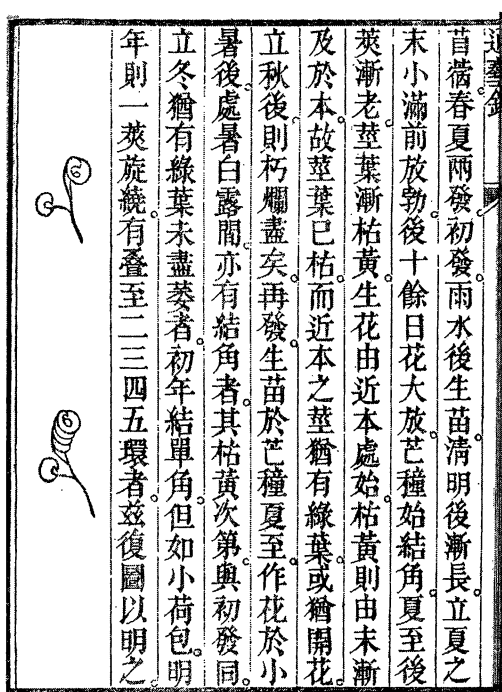 苜蓿春夏兩發初發雨水後生苗清明後漸長立夏之
末小滿前放勃後十餘日花大放芒種始結角夏至後
莢漸老莖葉漸枯黃生花由近本處始枯黃則由末漸
及於本故莖葉已枯而近本之莖猶有綠葉或猶開花
立秋後則朽爛盡矣再發生苗於芒種夏至作花於小
暑後處暑白露間亦有結角者其枯黃次第與初發同
立冬猶有綠葉未盡萎者初年結單角但如小荷包明
年則一莢旋繞有疊至二三四五環者茲復圖以明之